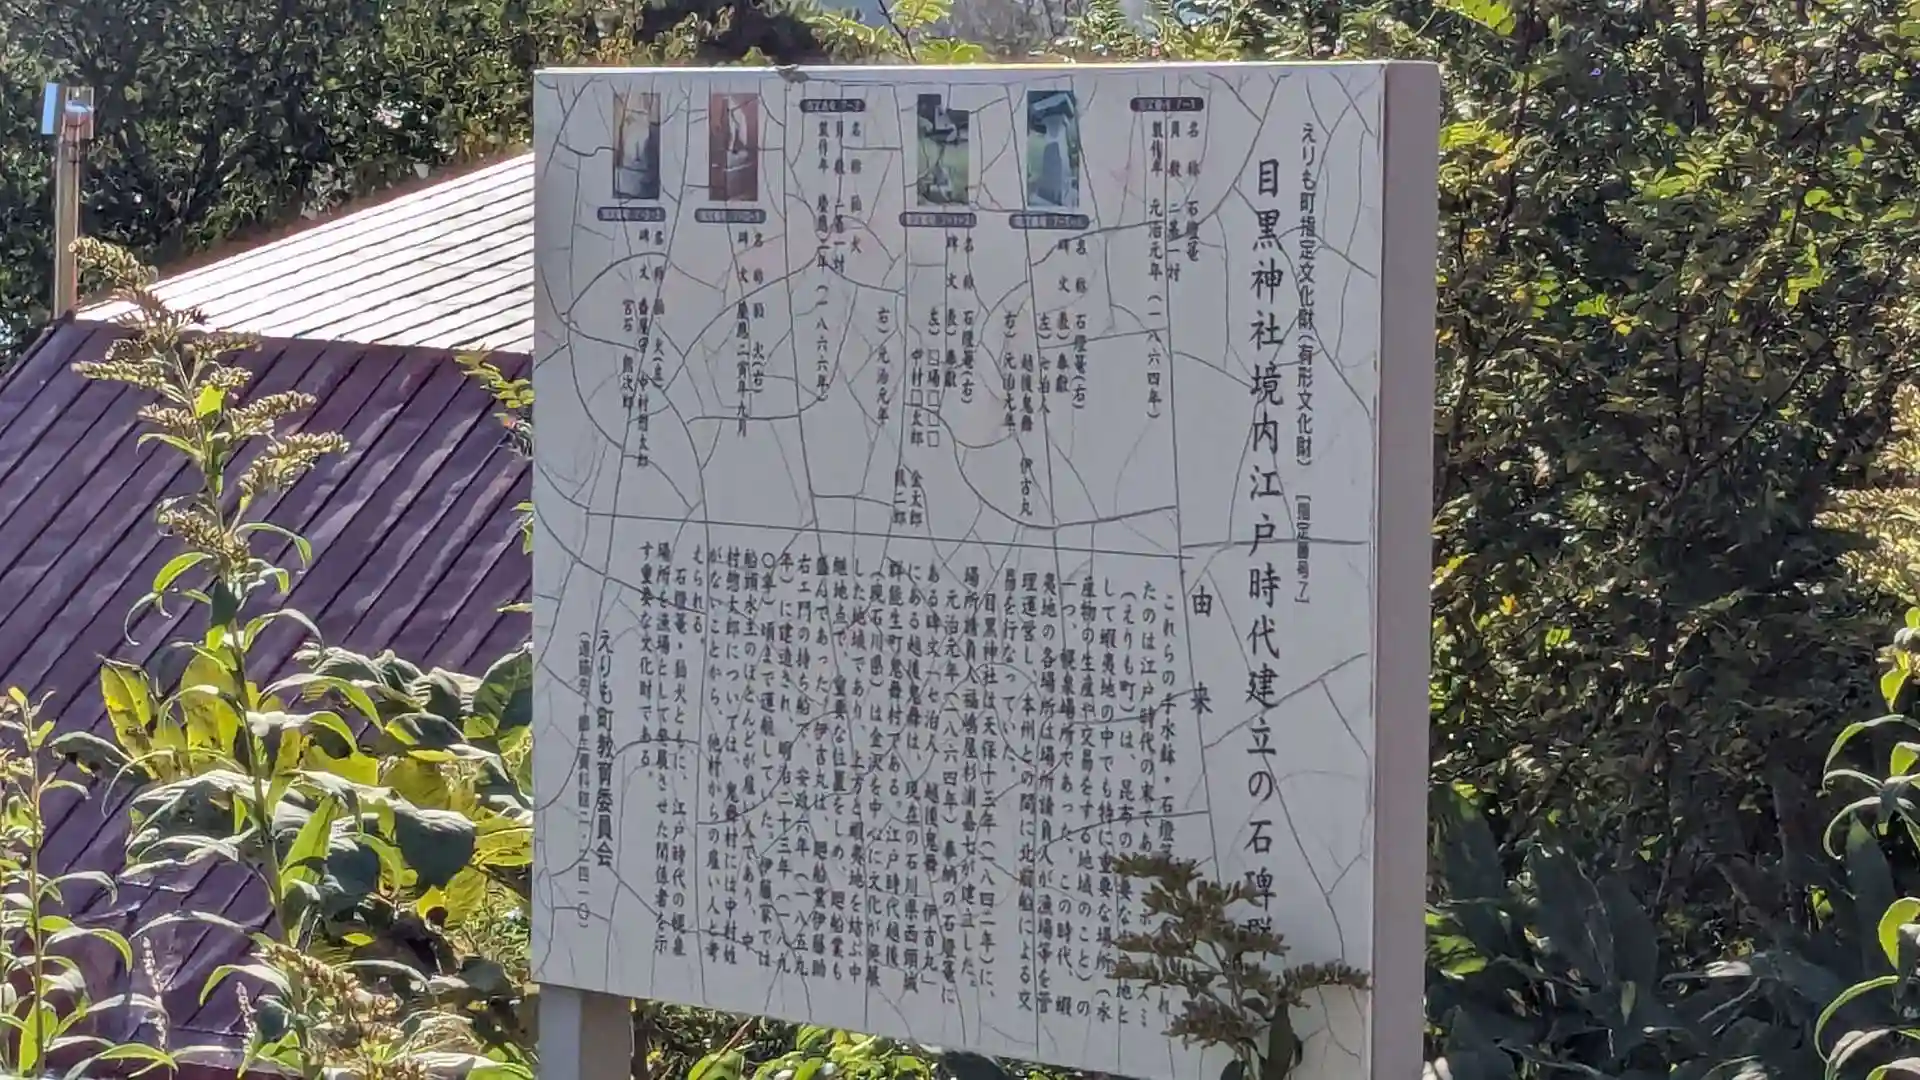 えりも町指定文化財(有形文化財) [指定番号7]
目黒神社境内江戸時代建立の石碑群
指定番号7-1
名 称 石燈篭
員 数 二基一対
製作年 元治元年(一八六四年)
名 称 石燈篭(左)
碑 文 表)奉献
左)七泊人
越後鬼舞 伊古丸
右)元治元年
名 称 石燈篭(右)
碑 文 表)奉献
左)□場□□□
中村□太郎 金太郎
右)元治元年
指定番号7-2
名 称 狛犬
員 数 二基一対
製作年 慶應二年(一八六六年)
名 称 狛 犬(右)
碑 文 慶應二寅年九月
名 称 狛 犬(左)
碑 文 番屋守 中村惣太郎
宮石
由来
これらの手水鉢・石燈篭
たのは江戸時代の末であ
(えりも町)は、昆布の
して蝦夷地の中でも特に重要な場所(水
産物の生産や交易をする地域のこと)の
一つ、幌泉場所であった。この時代、蝦
夷地の各場所は場所請負人が漁場等を管
理運営し、本州との間に北前船による交
易を行なっていた。
目黒神社は天保十三年(一八四二年)に、
場所請負人福嶋屋杉浦嘉七が建立した。
元治元年(一八六四年)奉納の石燈篭に
ある碑文「七泊人 越後鬼舞 伊古丸」
にある越後鬼舞は、現在の石川県西頸城
郡能生町鬼舞村である。江戸時代越後
(現石川県)は金沢を中心に文化が発展
した地域であり、上方と蝦夷地を結ぶ中
継地点で、重要な位置をしめ、廻船業も
盛んであった。伊古丸は、廻船業伊藤助
右エ門の持ち船で、安政六年(一八五九
年)に建造され、明治二十三年(一八九
〇年)頃まで運航していた。伊藤家では
船頭水主のほとんどが雇い人であり、中
村惣太郎については、鬼舞村には中村姓
がないことから、他村からの雇い人と考
えられる。
石燈篭・狛犬ともに、江戸時代の幌泉
場所を漁場として発展させた関係者を示
す重要な文化財である。
えりも町教育委員会